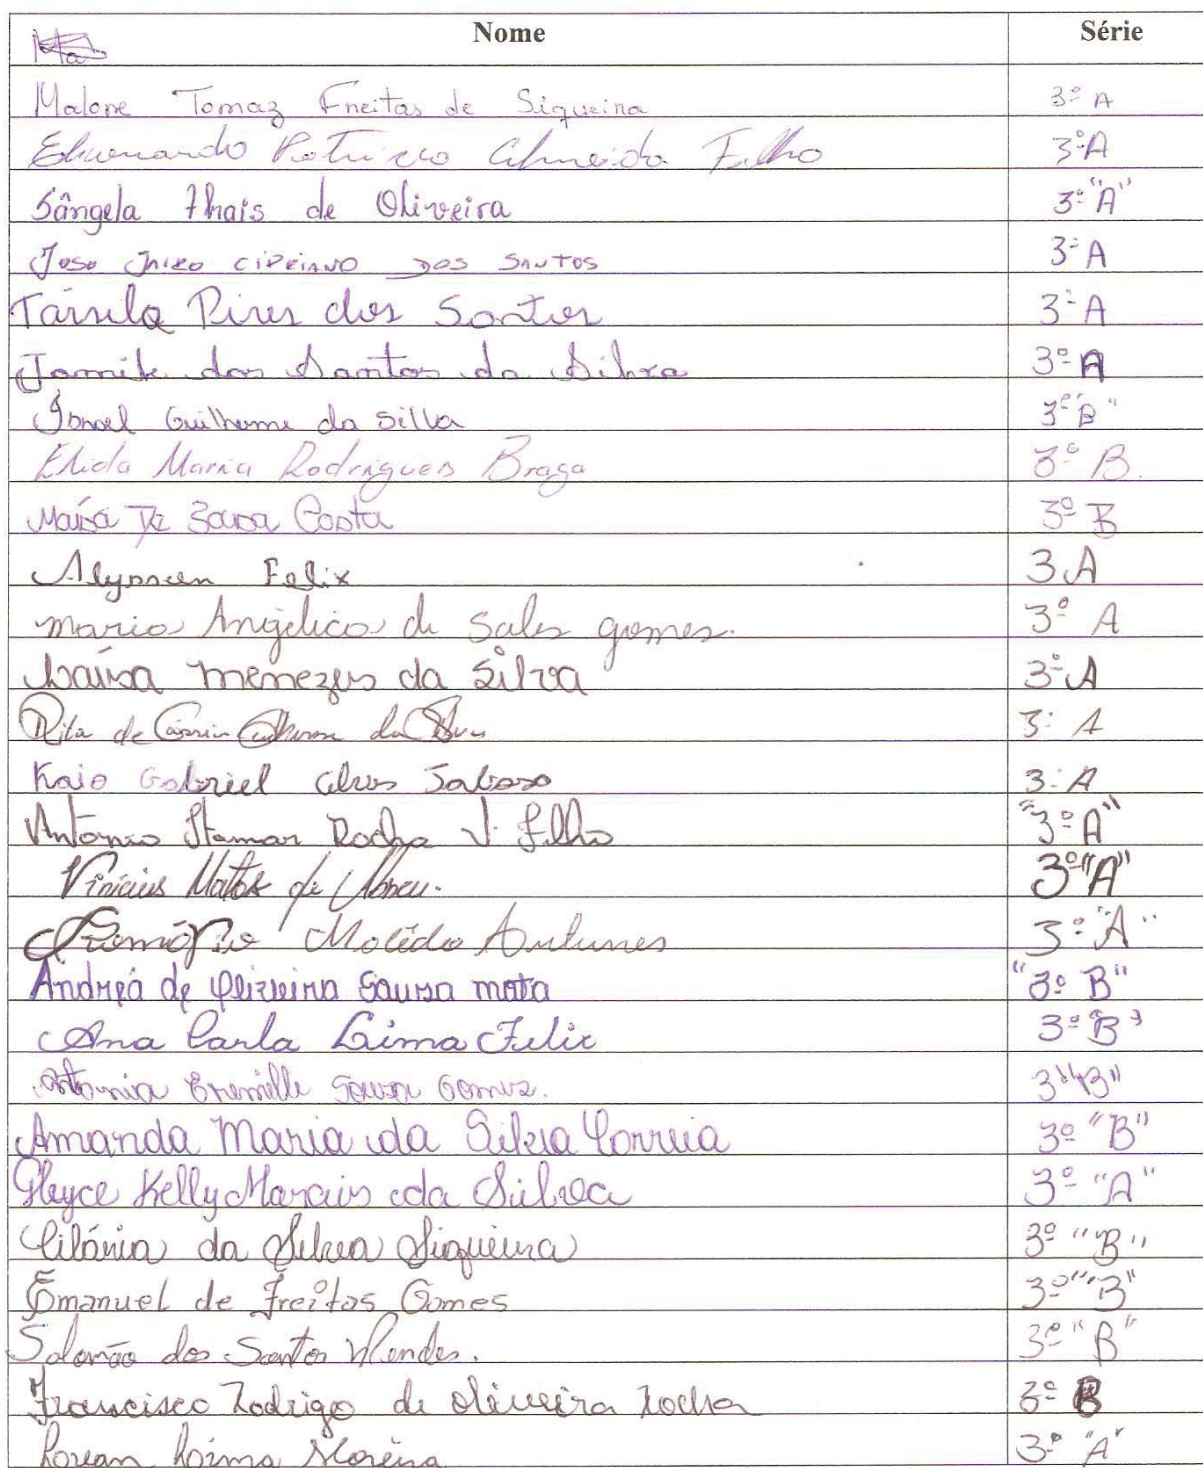 Nome Série
Malone Tomaz Freitas de Siqueira 3º A
Patrício Almeida Filho 3º A
Sângela Thais de Oliveira 3º "A"
José Jairo Cipriano dos Santos 3º A
Társila Pires dos Santos 3º A
Jamile dos Santos da Silva 3º A
Ismael Guilherme da Silva 3º "B"
Elida Maria Rodrigues Braga 3º B.
Maísa De Costa 3º B
Felix 3 A
Maria Angélica de Sales Gomes. 3º A
Laísa Menezes da Silva 3º A
Rita de Cássia Guilherme da Silva 3º A
Kaio Gabriel Alves 3º A
Antonio Itamar Rocha V. Filho "3º A"
Vinícius Matos de Abreu. 3º "A"
Antunes 3º "A"
Andréa de Oliveira Sousa mota "3º B"
Ana Carla Lima Felix 3º "B"
Antonia Souza Gomes. 3º "B"
Amanda Maria da Silva Correia 3º "B"
Gleyce Kelly Morais da Silva 3º "A"
Cilânia da Silva Siqueira 3º "B"
Emanuel de Freitas Gomes 3º "B"
Salomão dos Santos Mendes. 3º "B"
Francisco Rodrigo de Oliveira Rocha 3º B
Lorean Moreira 3º "A"